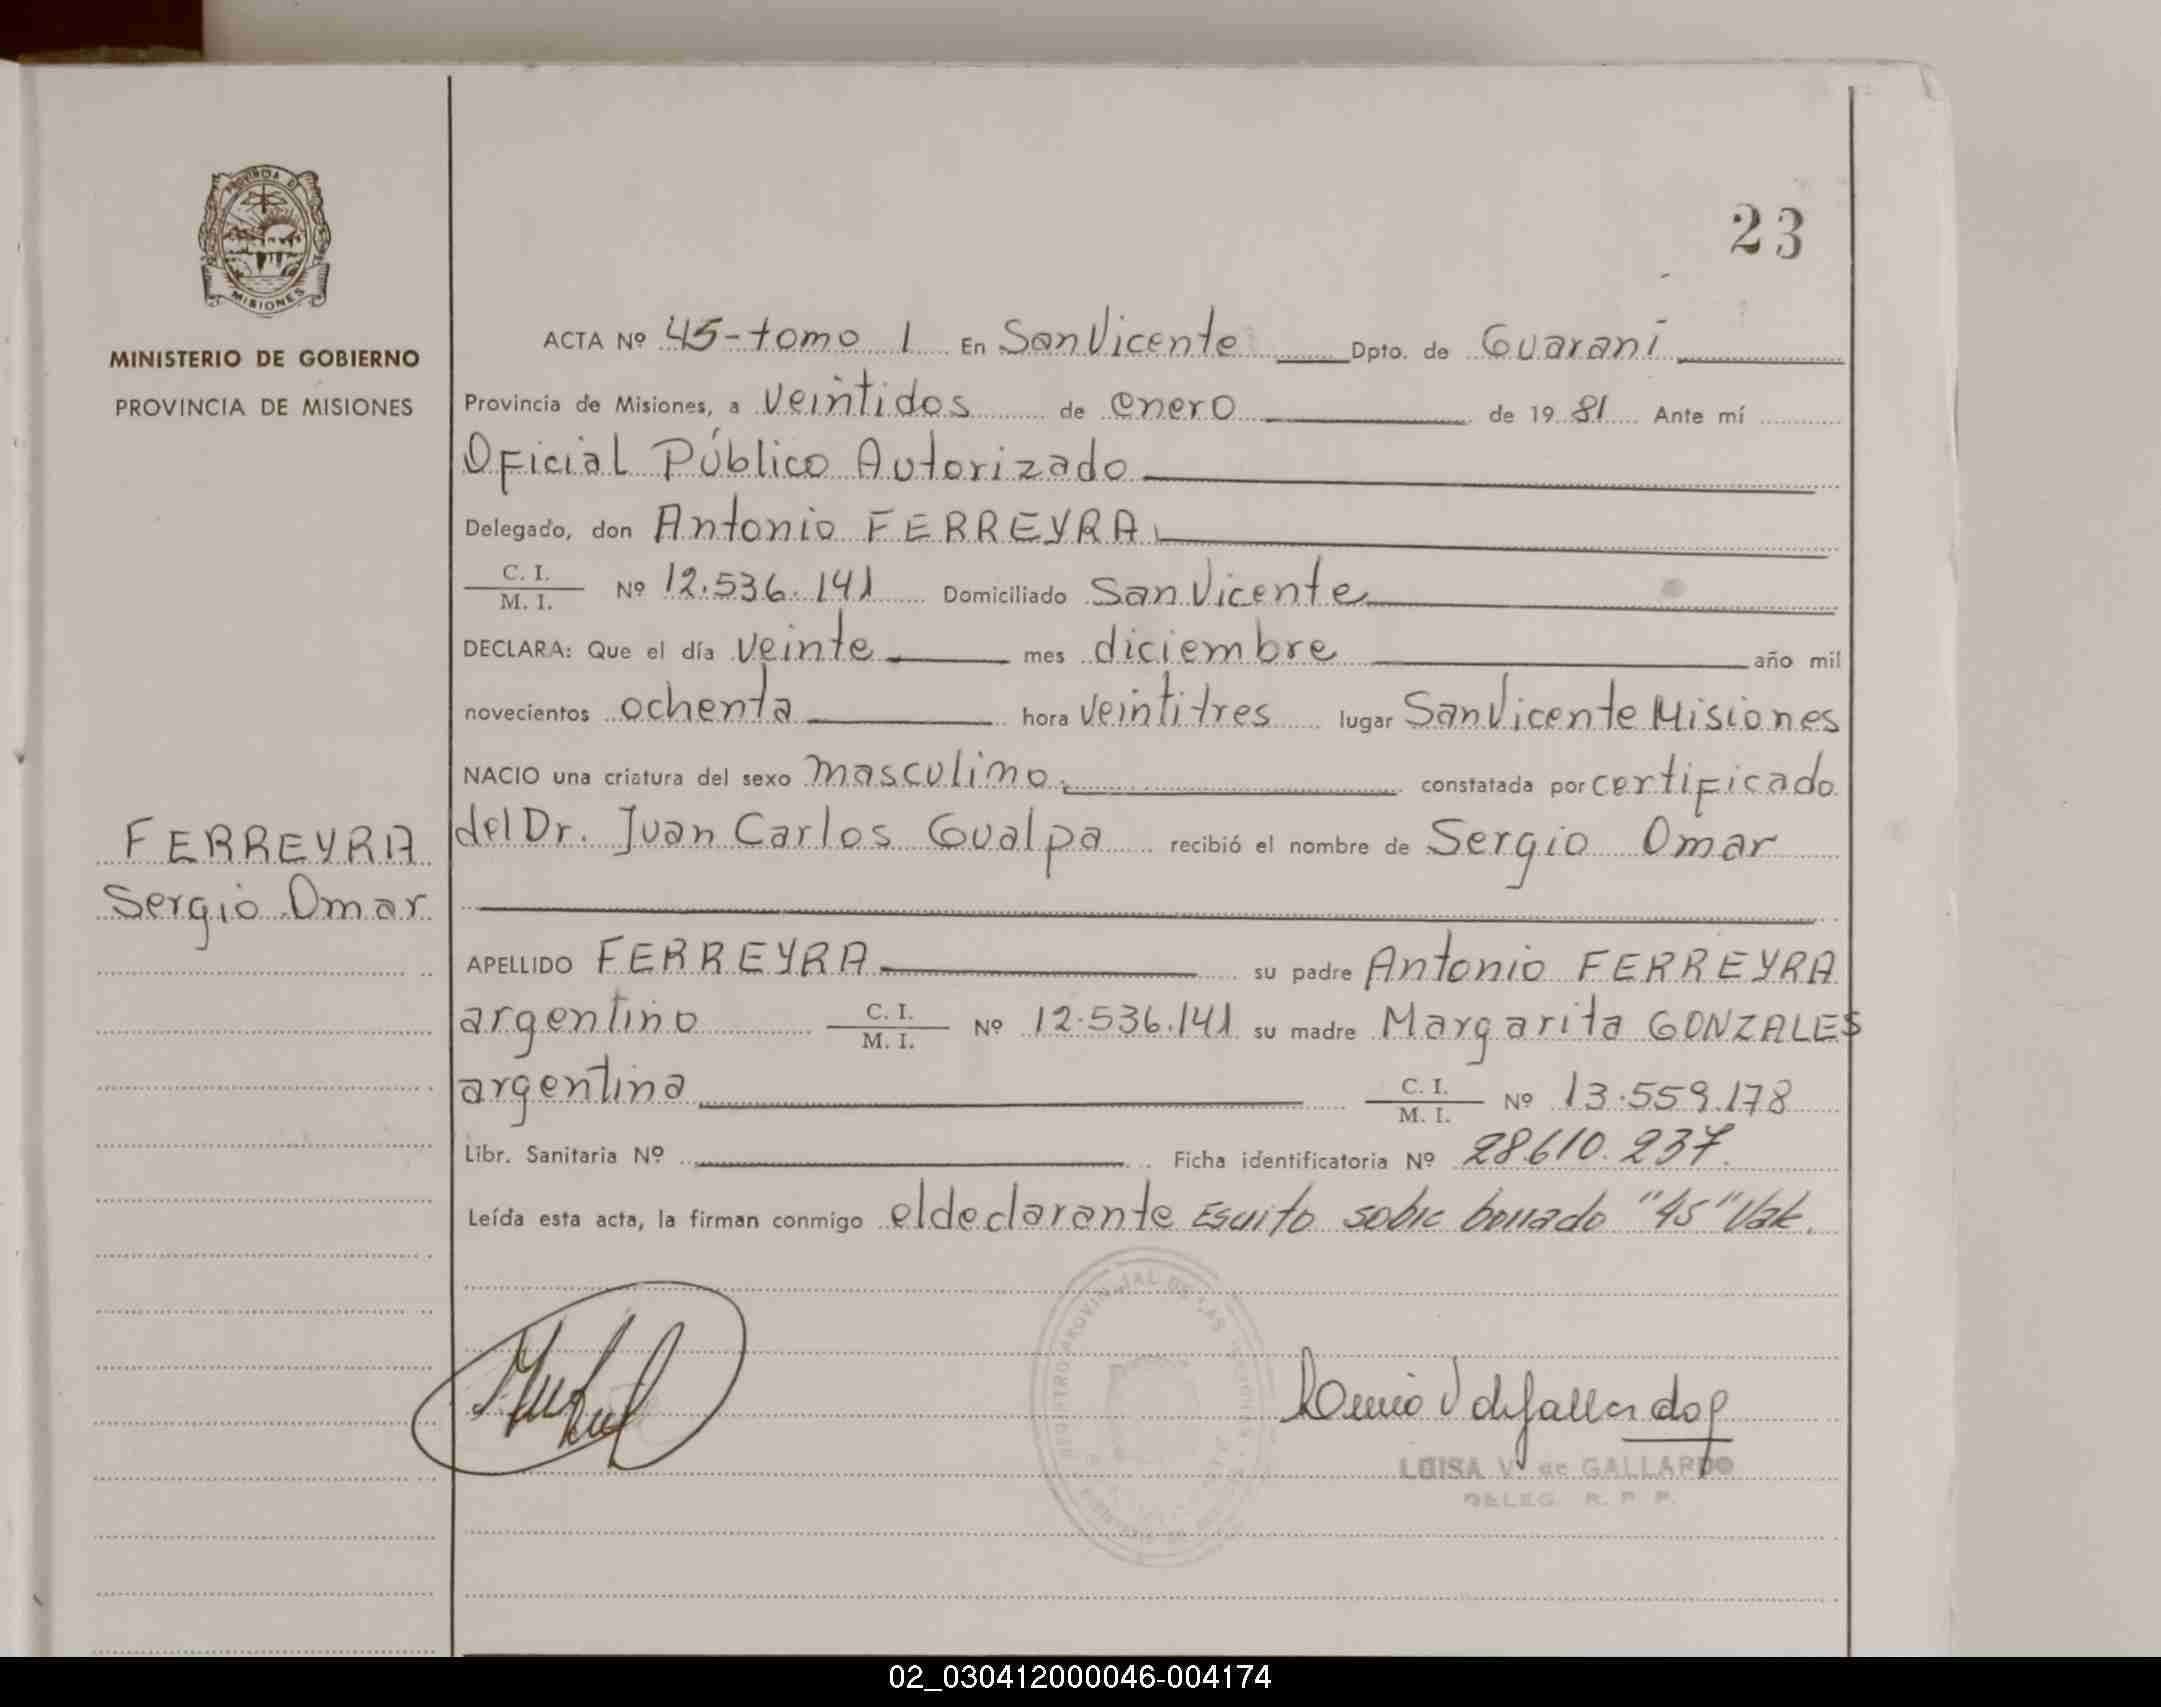 23
PROVINCIA DE
MISIONES
MINISTERIO DE GOBIERNO
PROVINCIA DE MISIONES
ACTA Nº 45-tomo 1 En San Vicente Dpto. de Guaraní
Provincia de Misiones, a veintidos de enero de 1981 Ante mí
Oficial Público Autorizado
Delegado, don Antonio FERREYRA
C. I.
M. I. Nº 12.536.141 Domiciliado San Vicente
DECLARA: Que el día veinte mes diciembre año mil
novecientos ochenta hora veintitres lugar San Vicente Misiones
NACIO una criatura del sexo masculino constatada por certificado
del Dr. Juan Carlos Gualpa recibió el nombre de Sergio Omar
FERREYRA
Sergio Omar
APELLIDO FERREYRA su padre Antonio FERREYRA
argentino C. I.
M. I. Nº 12.536.141 su madre Margarita GONZALES
argentina C. I.
M. I. Nº 13.559.178
Libr. Sanitaria Nº Ficha identificatoria Nº 28610.237
Leída esta acta, la firman conmigo el declarante Escrito sobre borrado "45" Vale.
LUISA V. de GALLARDO
DELEG. R. P. P.
02_030412000046-004174